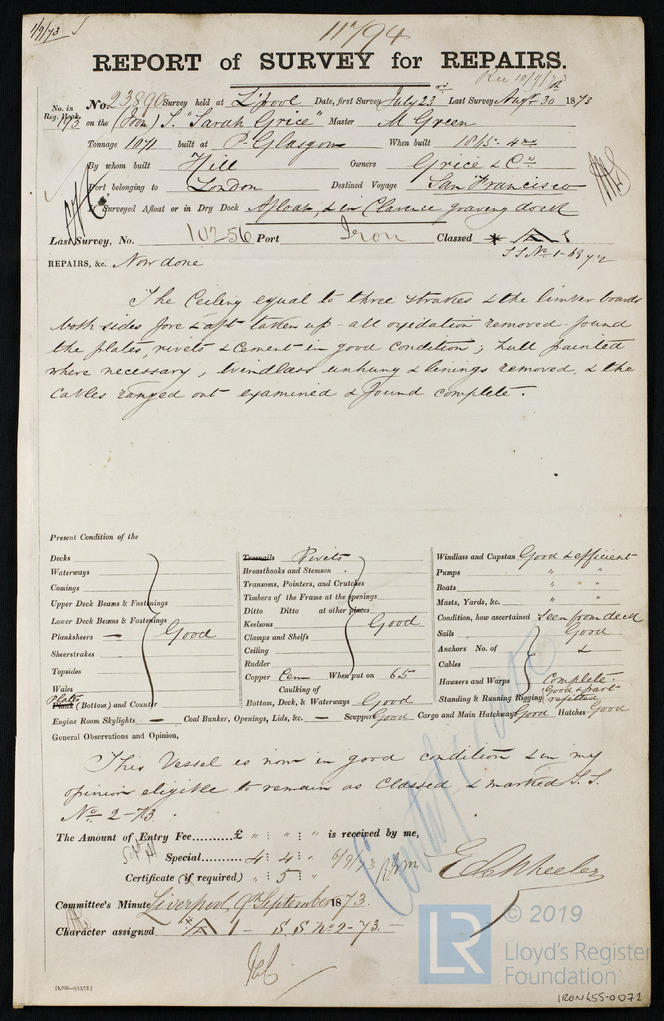 1/9/73
11794
REPORT of SURVEY for REPAIRS.
Rec 10/9/73
No. in Reg. Book. 193 No. 23890 Survey held at L'pool Date, first Survey July 23rd Last Survey Augt 30th 1873
on the (Iron) S. "Sarah Grice" Master M Green
Tonnage 1071 built at P. Glasgow When built 1865 - 4
By whom built Hill Owners Grice & Co
Port belonging to London Destined Voyage San Francisco
If Surveyed Afloat or in Dry Dock Afloat, & in Clarence graving dock
Last Survey, No. 10256 Port Iron Classed
S S No 1-69
REPAIRS, &c. Now done
The Ceiling equal to three strakes & the limber boards
both sides fore & aft taken up - all oxidation removed - found
the plates, rivets & cement in good condition; hull painted
where necessary, Windlass unhung & linings removed, & the
Cables ranged out examined & found complete.
Present Condition of the
Decks
Waterways
Comings
Upper Deck Beams & Fastenings
Lower Deck Beams & Fastenings
Planksheers — Good
Sheerstrakes
Topsides
Wales
Plates
Plank (Bottom) and Counter
Treenails Rivets
Breasthooks and Stemson
Transoms, Pointers, and Crutches
Timbers of the Frame at the openings
Ditto Ditto at other places
Keelsons Good
Clamps and Shelfs
Ceiling
Rudder
Copper Cem When put on 65
Caulking of
Bottom, Deck, & Waterways Good
Windlass and Capstan Good & efficient
Pumps " " "
Boats " " "
Masts, Yards, &c. " "
Condition, how ascertained Seen from deck
Sails Good
Anchors No. of &
Cables
Hawsers and Warps Complete.
Standing & Running Rigging Good & part refitted
Engine Room Skylights — Coal Bunker, Openings, Lids, &c. — Scuppers Good Cargo and Main Hatchways Good Hatches Good
General Observations and Opinion,
This Vessel is now in good condition & in my
opinion eligible to remain as Classed, & marked S.S.
No 2-73.
Certificate
The Amount of Entry Fee..........£ " : " : " is received by me,
Special.......... 4 : 4 : " 6/9/73
Certificate (if required) " : 5 : " E. Wheeler
Committee's Minute Liverpool, 9th September 1873.
Character assigned A 1 - S.S No 2-73. -
[4,000—9/12/72.]
LR
© 2019
Lloyd's Register
Foundation
IRON455-0072